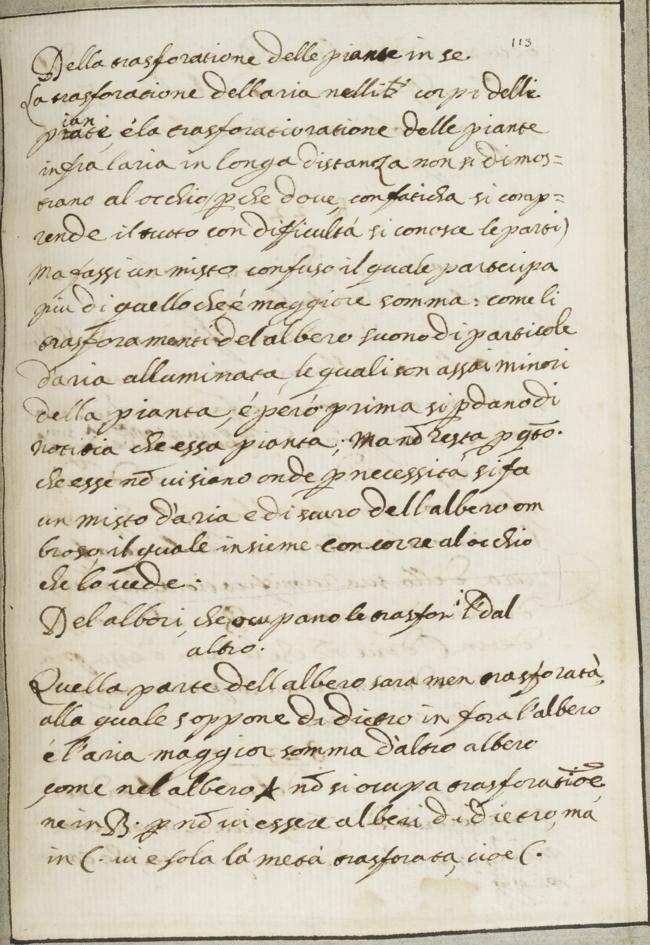 113
Della trasforatione delle piante in se.
La trasforatione dell aria nelli corpi delle
piante é la trasforaticoratione delle piante
infra laria in longa distanza non si dimos=
trano al occhio, pche dove, con faticha si comp=
rende il tutto con dificultá si conosce le parti)
ma fassi un misto confuso il quale partecipa
piu di quello che é maggiore somma: come li
trasforamenti del albero suono di particole
d'aria alluminata, le quali son assai minori
della pianta, é peró prima si pdano di
notitia che essa pianta; ma nō resta p q̄to.
che esse nō vi siano onde p necessitá, si fa
un misto d'aria e di scuro dell albero om
broso, il quale insieme concorre al occhio
che lo vede.
Del alberi, che ocupano le trasfor i l'ũ dal
altro.
Quella parte dell albero sara men trasforatà,
alla quale s oppone di dietro in fora l'albero
é l'aria maggior somma d'altro albero
come nel albero A nō si ocupa trasforatiōe
ne in B. p nō vi essere alberi di dietro, má
in C. vi e sola lá metá trasforata, cioe C.